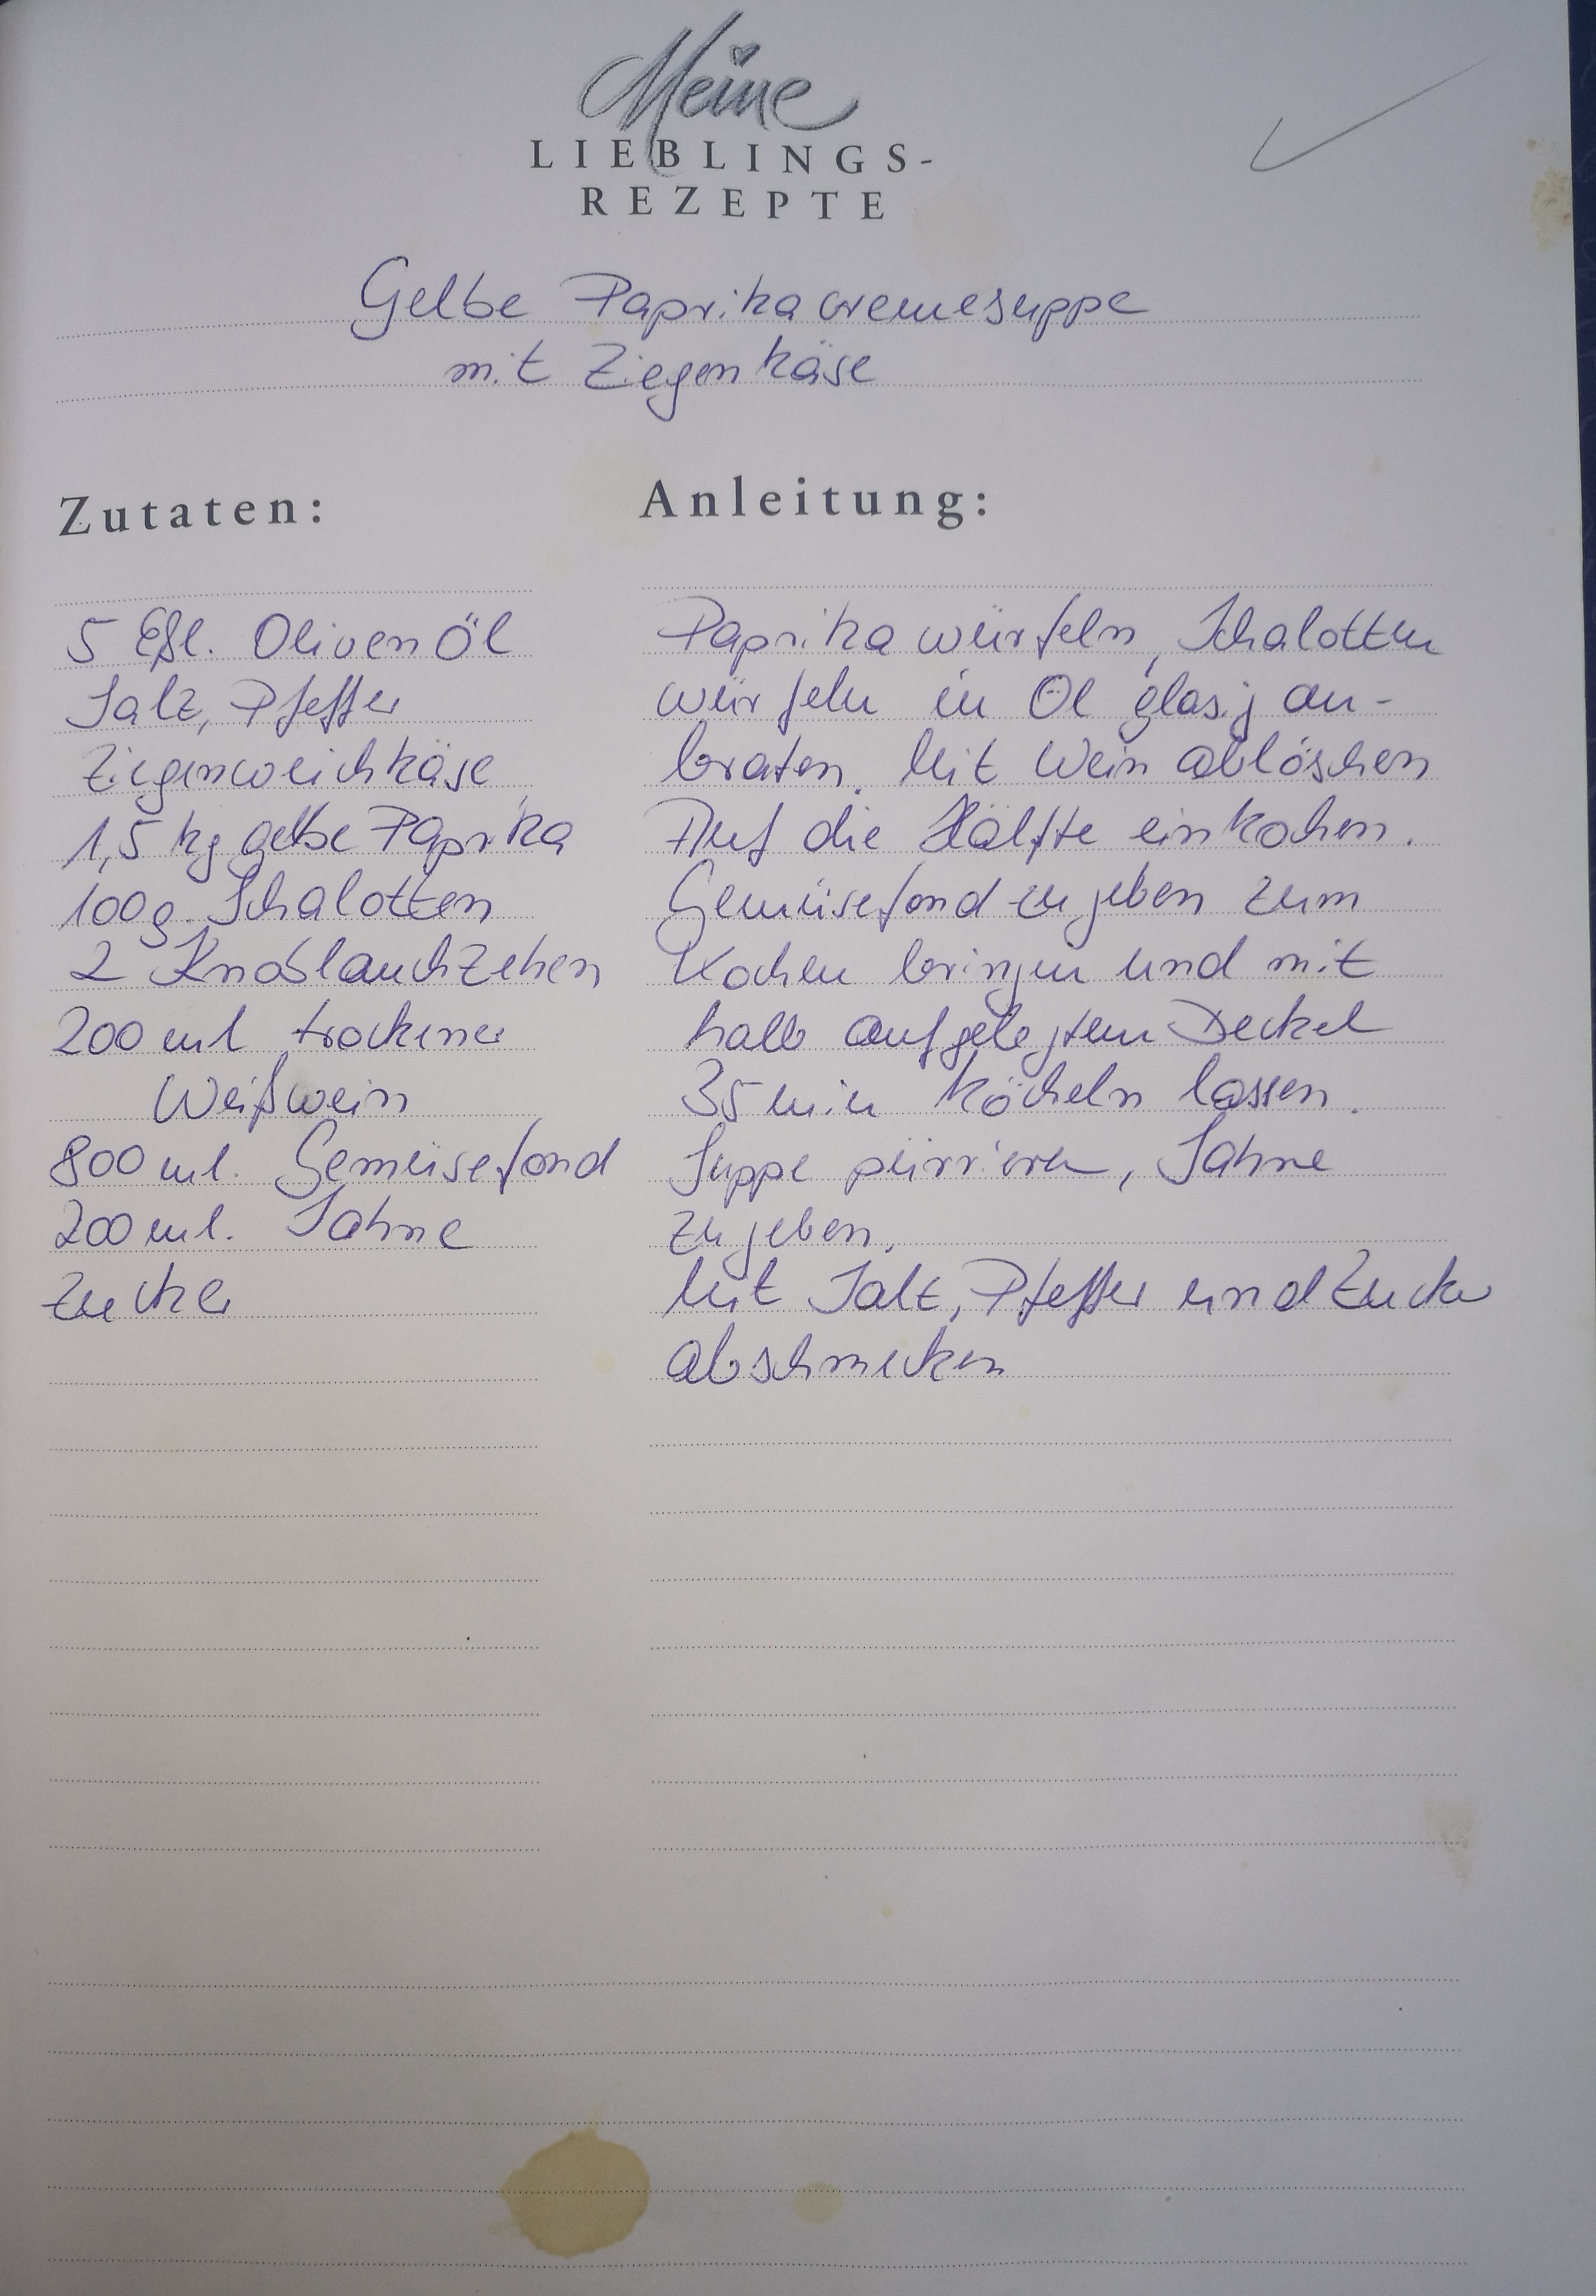 Meine
LIEBLINGS-
REZEPTE
Gelbe Paprikacremesuppe
mit Ziegenkäse
Zutaten:
5 Eßl. Olivenöl
Salz, Pfeffer
Ziegenweichkäse
1,5 kg gelbe Paprika
100g. Schalotten
2 Knoblauchzehen
200 ml trockener
Weißwein
800 ml. Gemüsefond
200 ml. Sahne
Zucker
Anleitung:
Paprika würfeln, Schalotten
würfeln in Öl glasig an-
braten. Mit Wein ablöschen
Auf die Hälfte einkochen.
Gemüsefond zugeben zum
Kochen bringen und mit
halb aufgelegtem Deckel
35 min köcheln lassen.
Suppe pürrieren, Sahne
zugeben,
Mit Salz, Pfeffer und Zucker
abschmecken